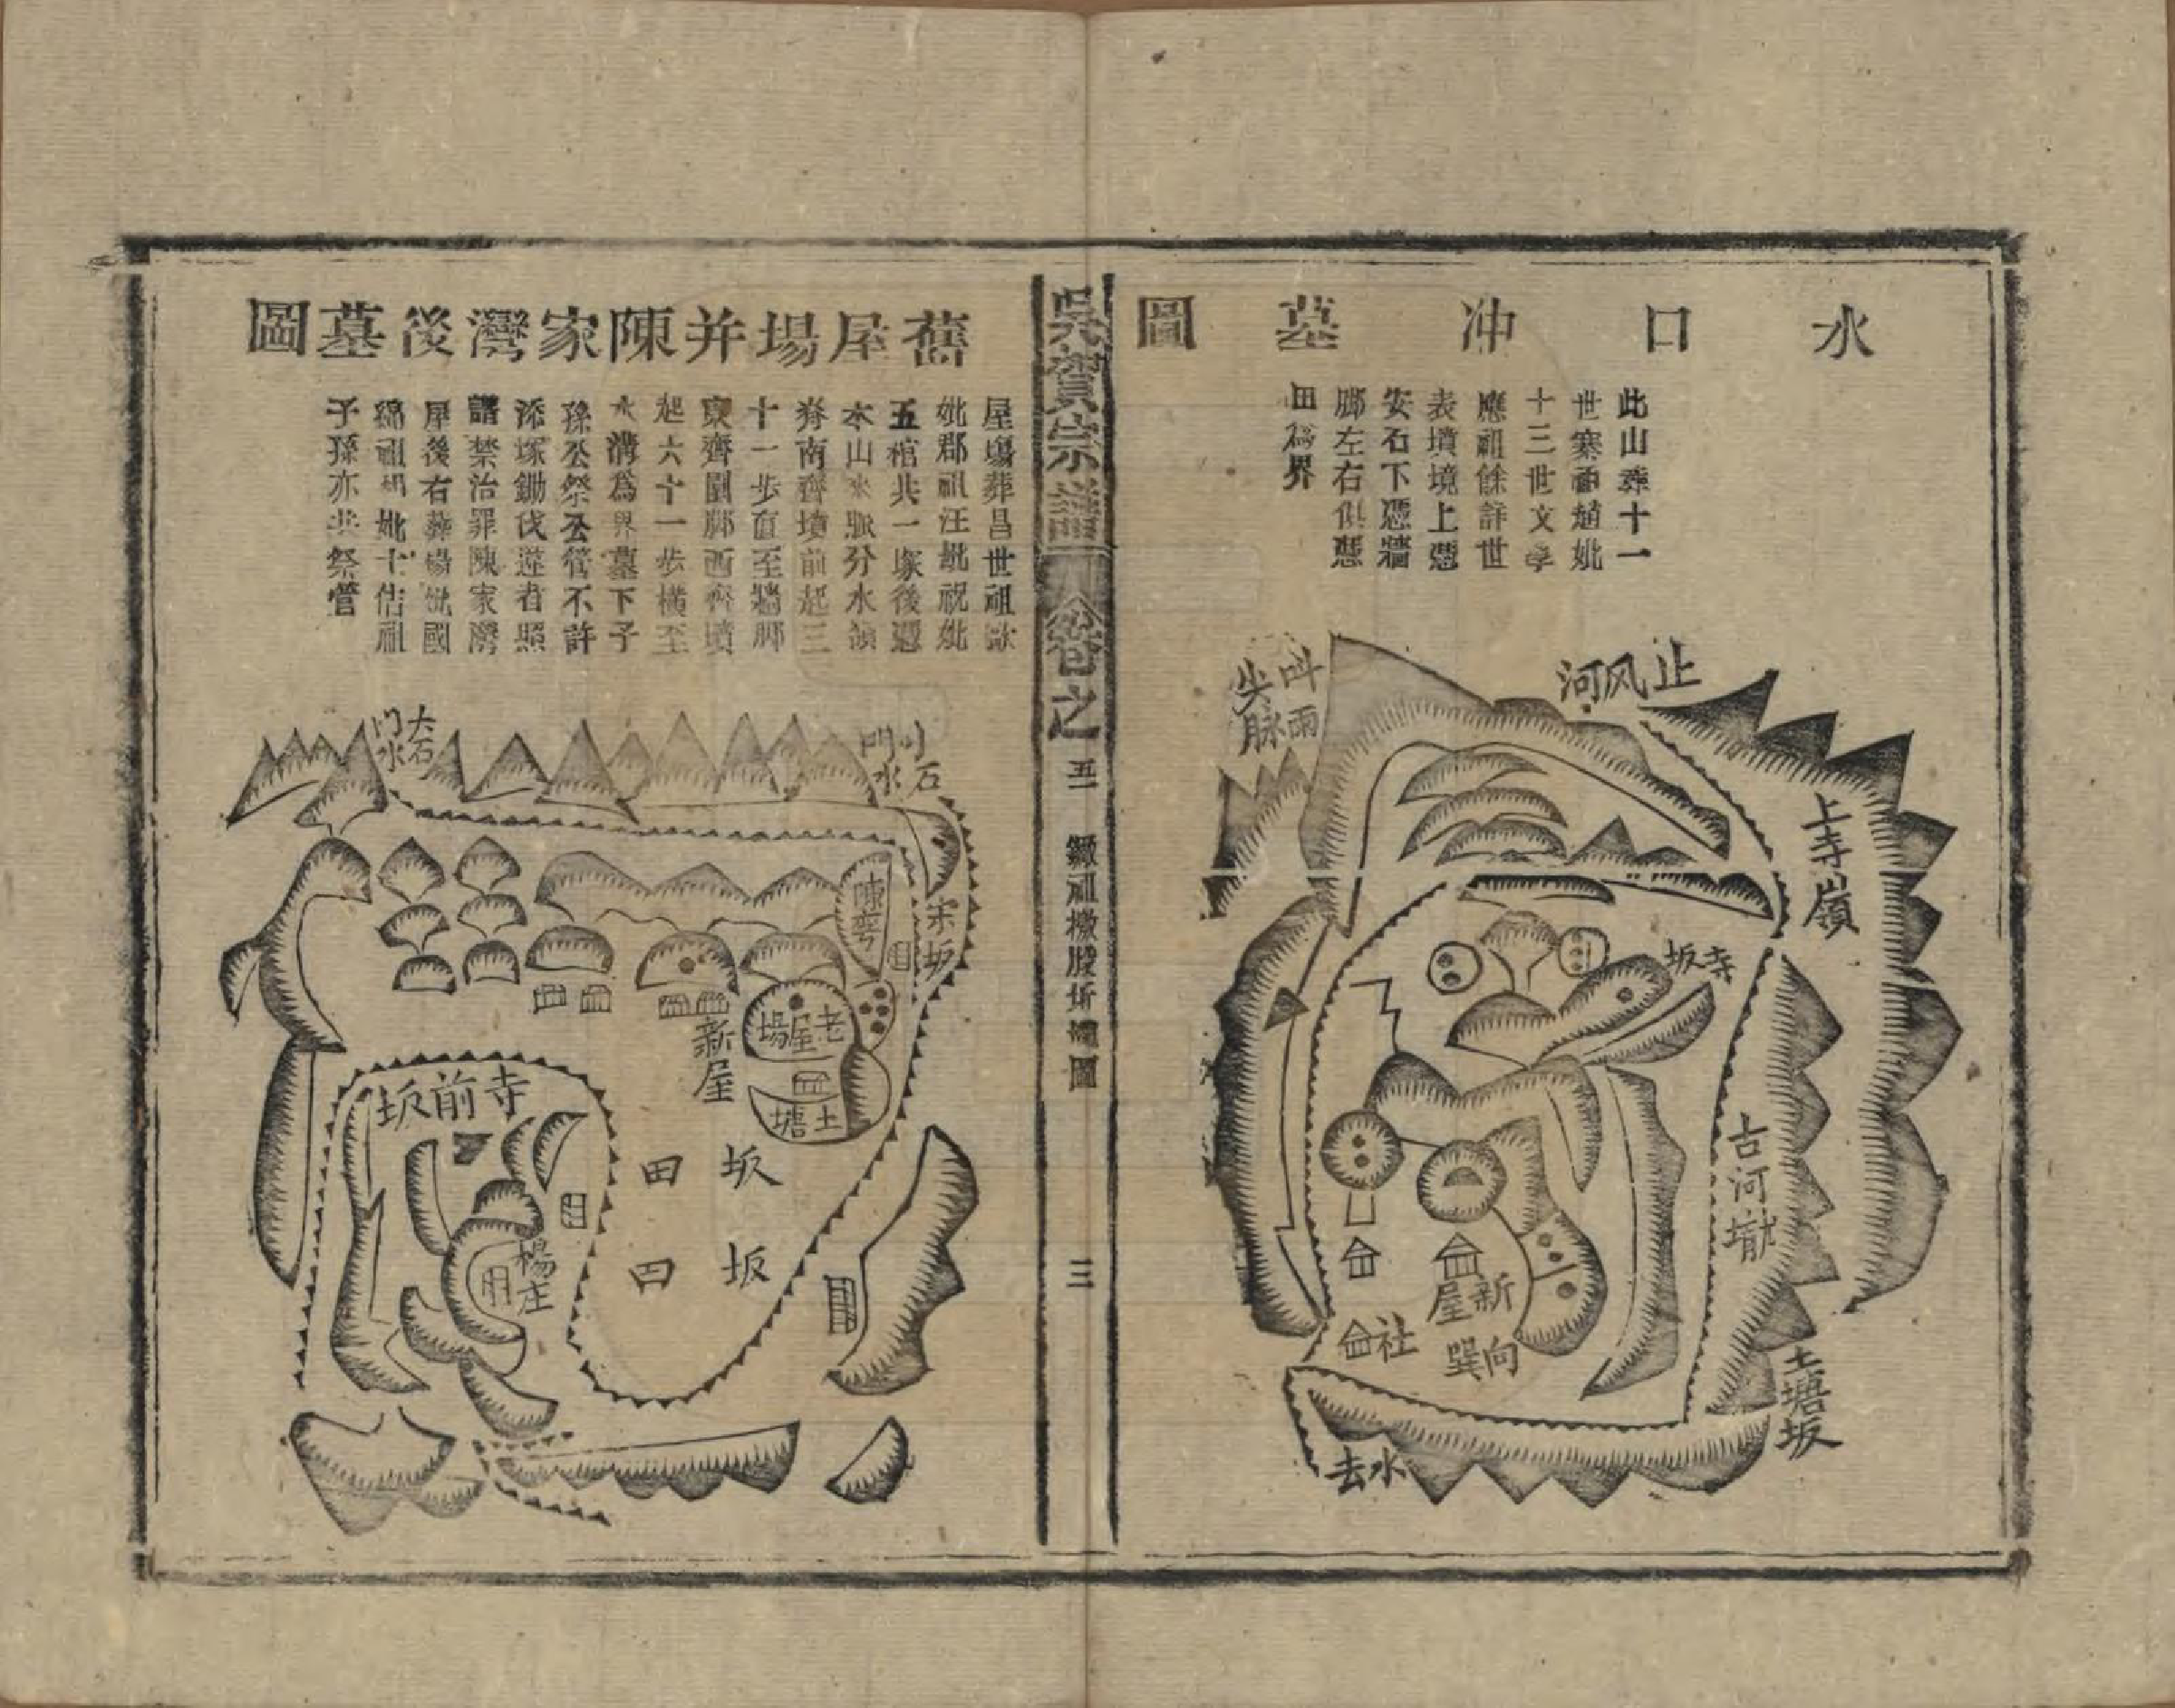 水口冲墓圖
此山葬十一
世寨祖趙妣
十三世文學
應祖餘詳世
表墳境上憑
安石下憑牆
腳左右俱憑
田為界
叫雨
尖脉
止风河
上寺嶺
寺坂
古河墈
新屋
巽向
社
土塘坂
去水
吳賀宗譜
卷之五
墳圖
三
舊屋場并陳家灣後墓圖
屋塲葬昌世祖
妣郡祖汪妣祝妣
五棺共一塚後憑
本山來脈分水領
脊南齊墳前起三
十一步直至牆腳
東齊園腳西齊墳
起六十一步橫至
水溝為界墓下子
孫公祭公管不許
添塚鋤伐違者照
譜禁治罪陳家灣
屋後右葬楊妣國
綿祖胡妣士信祖
子孫亦共祭管
小石門水
大石門水
陳弯
宋坂
老屋場
土塘
新屋
寺前坂
楊庄
坂田
坂田